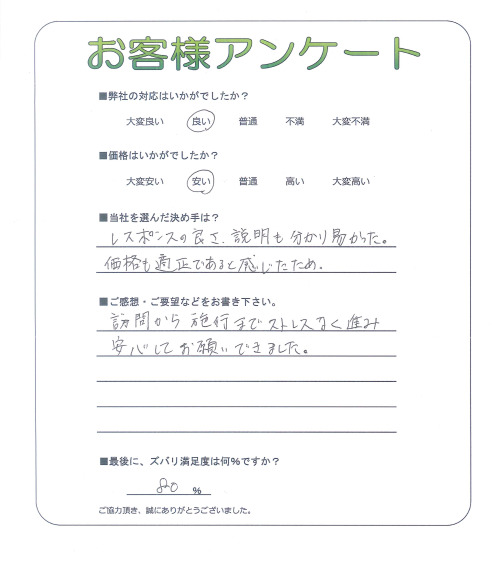 お客様アンケート
■弊社の対応はいかがでしたか?
大変良い 良い 普通 不満 大変不満
■価格はいかがでしたか?
大変安い 安い 普通 高い 大変高い
■当社を選んだ決め手は?
レスポンスの良さ、説明も分かり易かった。
価格も適正であると感じたため。
■ご感想・ご要望などをお書き下さい。
訪問から施行までストレスなく進み
安心してお願いできました。
■最後に、ズバリ満足度は何%ですか?
80 %
ご協力頂き、誠にありがとうございました。